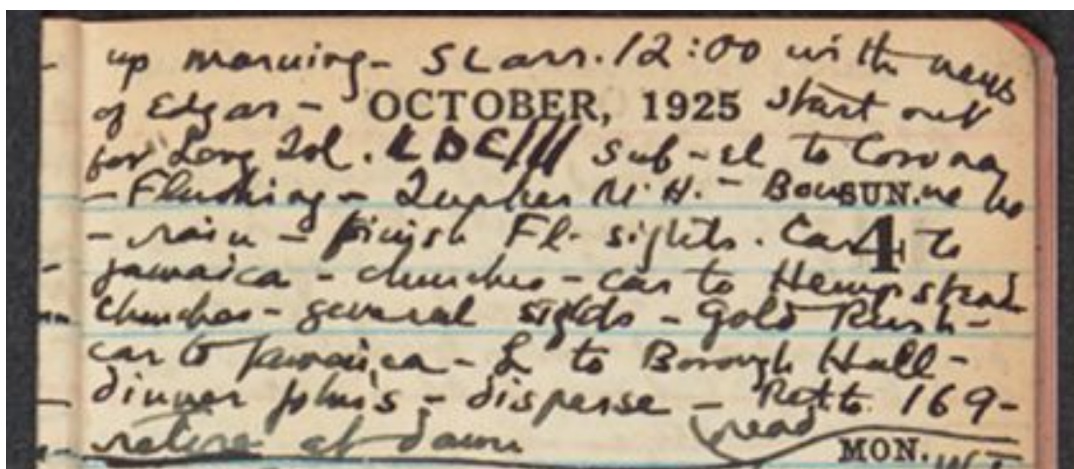 up morning - SL arr. 12:00 with news
of Edgar - OCTOBER, 1925 start out
for Long Isl. sub-el to Corona
- Flushing - Quaker M. H. - Bowne ho
SUN.
- rain - finish Fl. sights. Car to
4
Jamaica - churches - car to Hempstead
churches - general sights - Gold Rush -
car to Jamaica - L to Borough Hall -
dinner John's - disperse - Ret to 169 -
read
retire at dawn
MON.